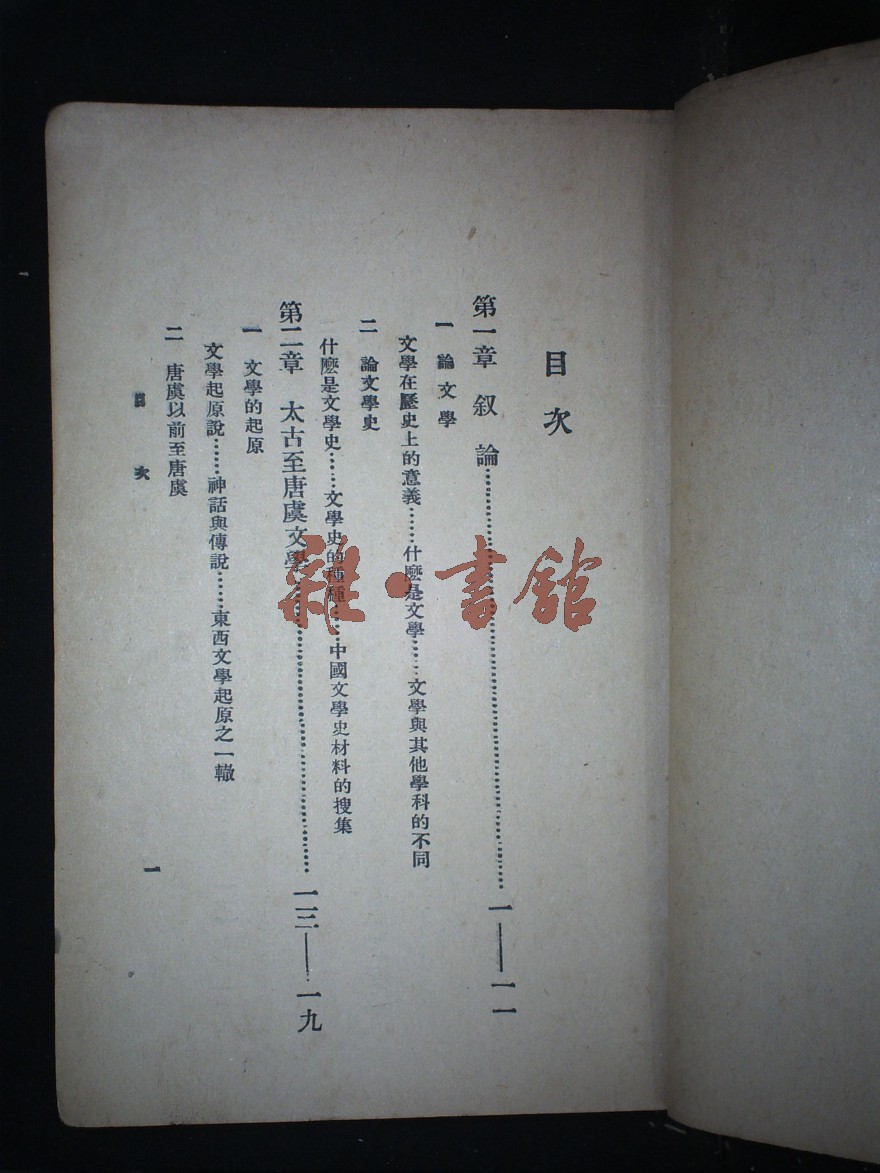 目次
第一章 叙論…………一——一一
一 論文學
文學在歷史上的意義……什麼是文學……文學與其他學科的不同
二 論文學史
什麼是文學史……文學史的種種……中國文學史材料的搜集
第二章 太古至唐虞文學…………一三——一九
一 文學的起原
文學起原說……神話與傳說……東西文學起原之一轍
二 唐虞以前至唐虞
目次
一
雜·書館